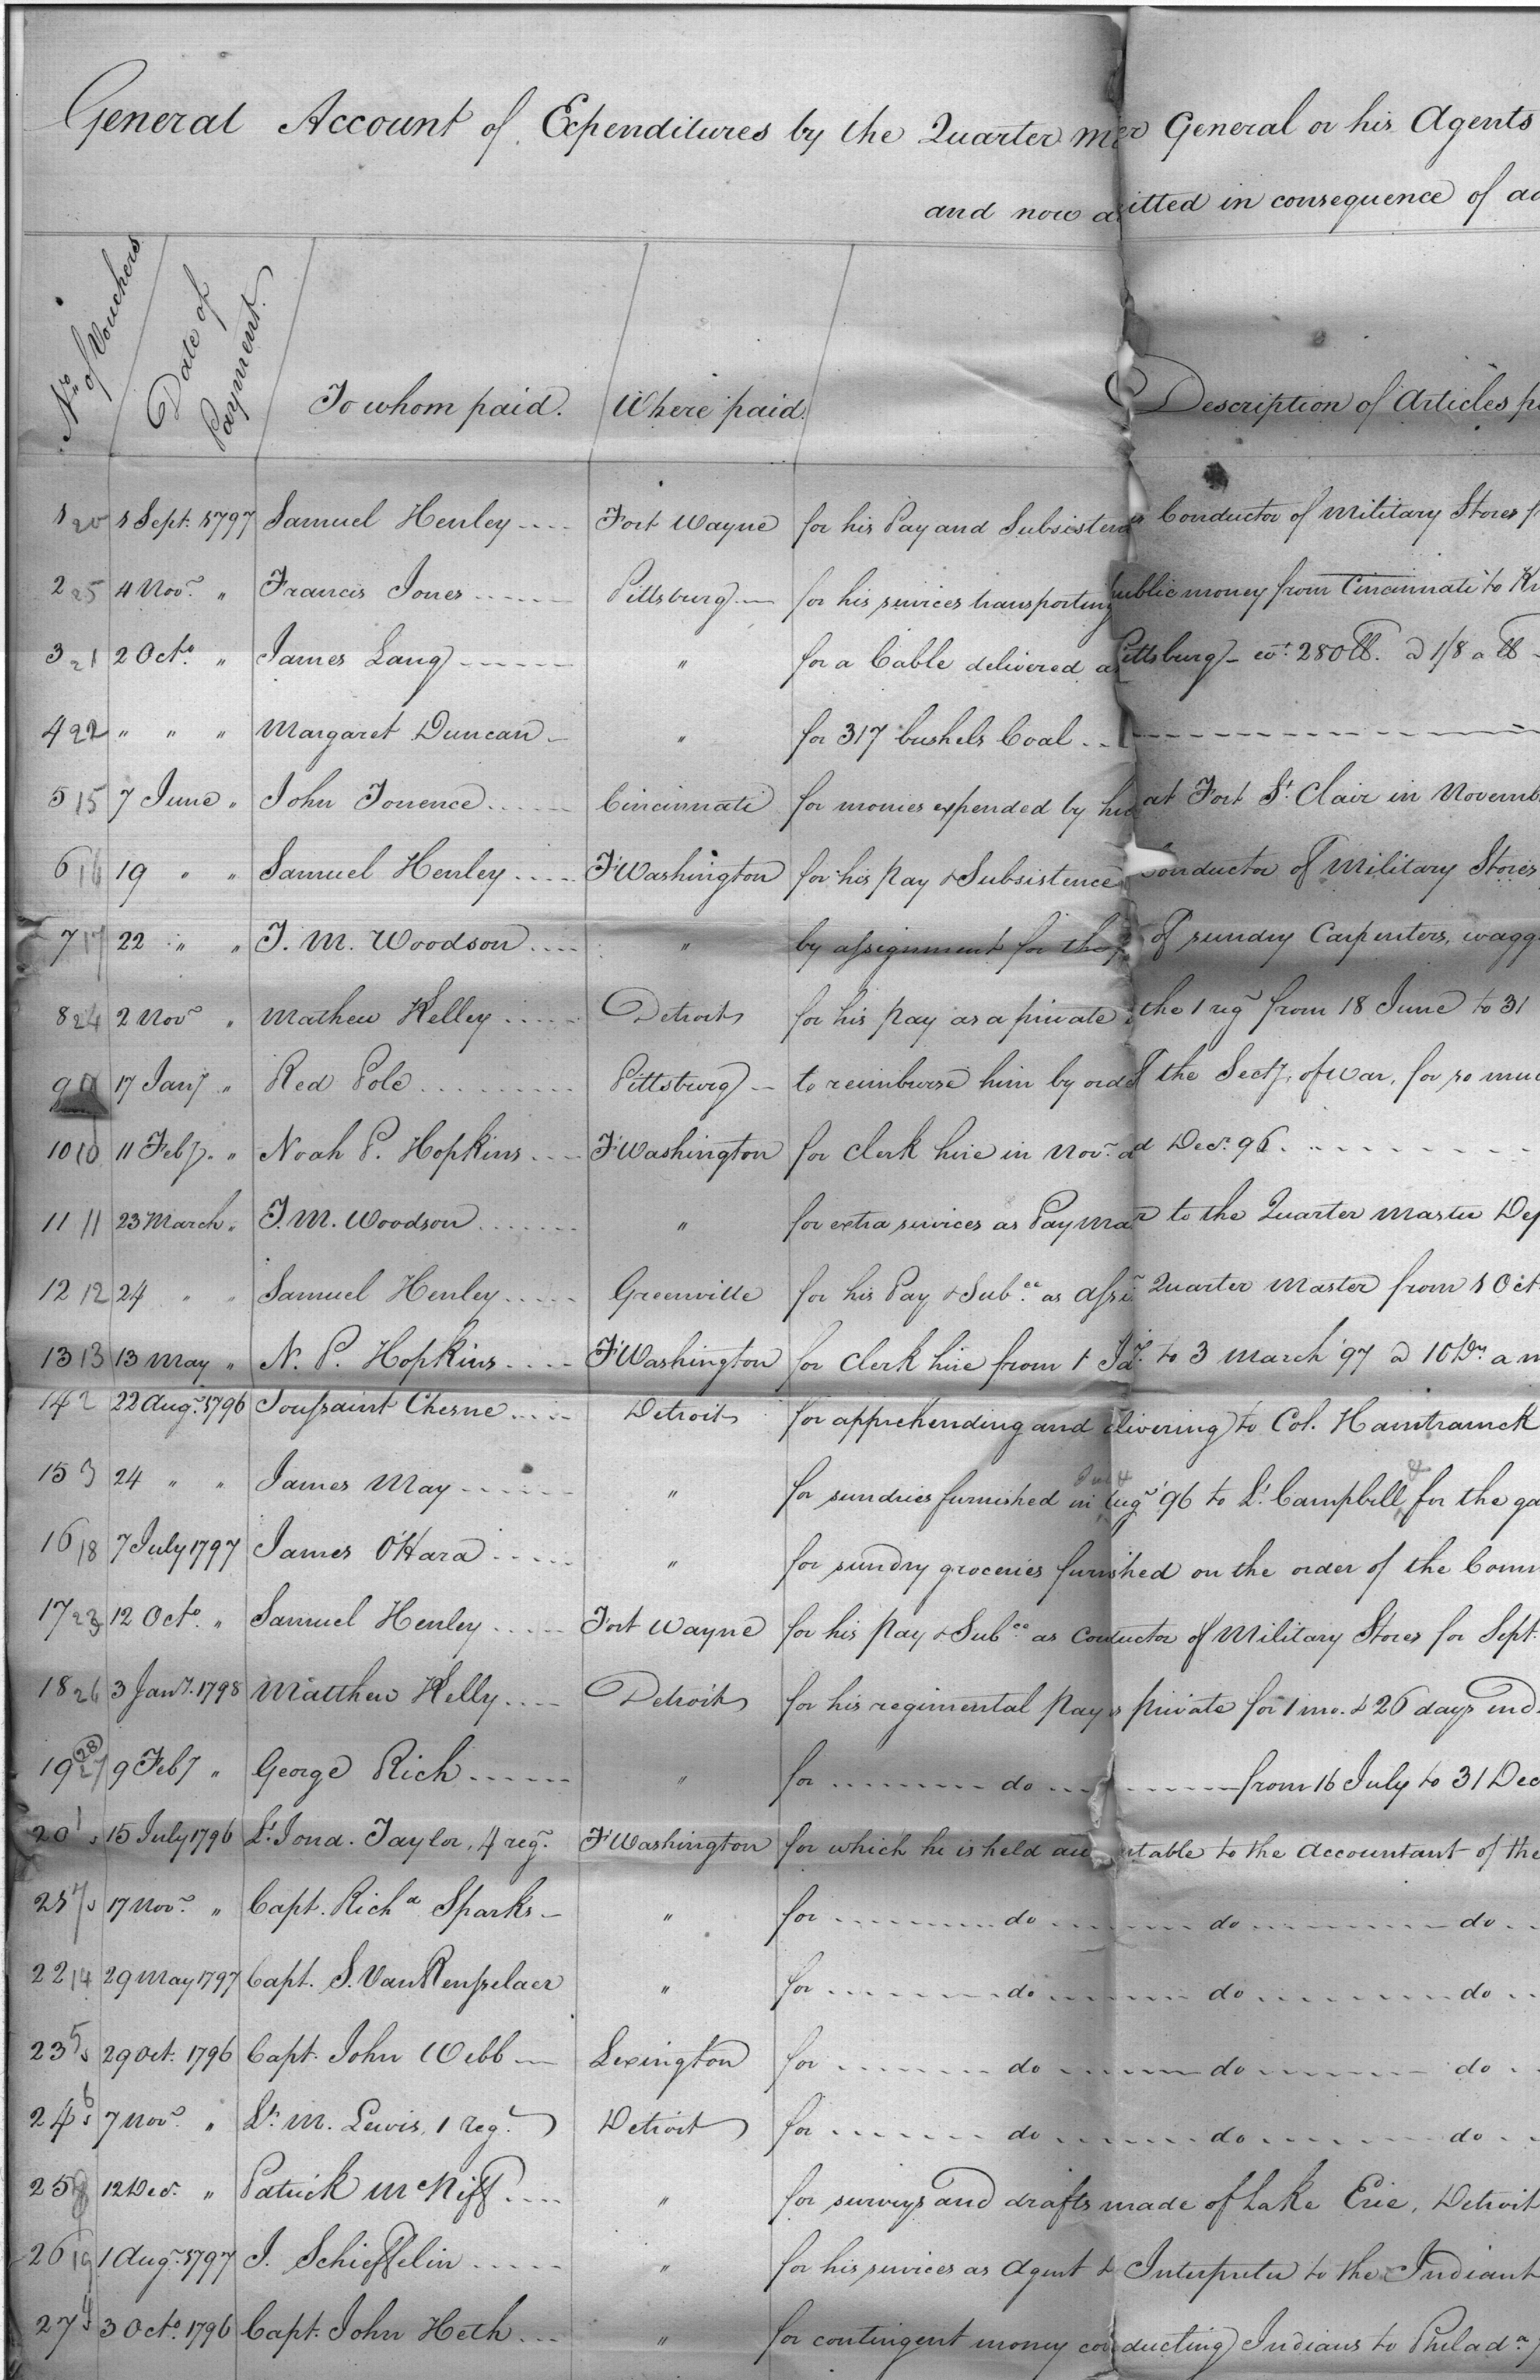 General Account of Expenditures by the Quarter Mer General or his Agents
and now a itted in consequence of
No. of Vouchers
Date of Payment.
To whom paid.
Where paid.
Description of Articles
1 20 1 Sept. 1797 Samuel Henley .... Fort Wayne for his Pay and Subsistence Conductor of Military Stores
2 25 4 Novr. " Francis Jones ...... Pittsburg — for his services transporting public money from Cincinnati to
3 21 2 Octo. " James Lang ------ " for a Cable delivered a Pittsburg - wt. 280 lb. @ 1/8 a lb -
4 22 " " " Margaret Duncan — " for 317 bushels Coal ..
5 15 7 June " John Torrence ...... Cincinnati for monies expended by hi at Fort St. Clair in Novemb
6 16 19 " " Samuel Henley .... Ft Washington for his pay & Subsistence Conductor of Military Stores
7 17 22 " " T. M. Woodson .... " by assignment for the p of sundry Carpenters, wagg
8 24 2 Novr " Mathew Kelley ..... Detroit for his pay as a private the 1 regt from 18 June to 31
9 17 Jany " Red Pole ........ Pittsburg — to reimburse him by ord the Secty. of War, for so mu
10 10 11 Feby. " Noah P. Hopkins .... Ft Washington for clerk hire in Novr. d Decr. 96.
11 11 23 March " T. M. Woodson ....... " for extra services as Pay Ma r to the Quarter Master Dep
12 12 24 " " Samuel Henley ..... Greenville for his Pay & Subce. as Asst. Quarter Master from 1 Oct
13 13 13 May " N. P. Hopkins .... Ft Washington for clerk hire from 1 Ja y. to 3 March '97 @ 10 Drs a m
14 2 22 Augt. 1796 Toussaint Chesne ..... Detroit for apprehending and elivering to Col. Hamtramck
15 3 24 " " James May ------ " for sundries furnished in Augt '96 to Lt. Campbell & for the ga
16 18 7 July 1797 James O'Hara ...... " for sundry groceries furnished on the order of the Com
17 23 12 Octo. " Samuel Henley ..... Fort Wayne for his pay & Subce. as Conductor of Military Stores for Sept.
18 26 3 Jany. 1798 Matthew Kelly .... Detroit for his regimental pay s private for 1 mo. & 26 days end.
19 27 28 9 Feby " George Rich ------ " for ........ do ........ from 16 July to 31 Dec
20 1 15 July 1796 Lt. Jona. Taylor, 4 regt. Ft Washington for which he is held acc ntable to the Accountant of the
21 7 17 Novr. " Capt. Richd Sparks — " for ........ do ........ do ........ do ..
22 14 29 May 1797 Capt. S. Van Rensselaer " for ........ do ........ do ........ do ..
23 5 29 Oct. 1796 Capt. John Webb — Lexington for ........ do ........ do ........ do ..
24 6 7 Novr. " Lt. M. Lewis, 1 regt. Detroit for ........ do ........ do ........ do ..
25 8 12 Decr. " Patrick McNiff .... " for surveys and drafts made of Lake Erie, Detroit
26 19 1 Augt. 1797 J. Schieffelin ..... " for his services as Agent & Interpreter to the Indians
27 4 3 Octo. 1796 Capt. John Heth ... " for contingent money con ducting Indians to Philada.